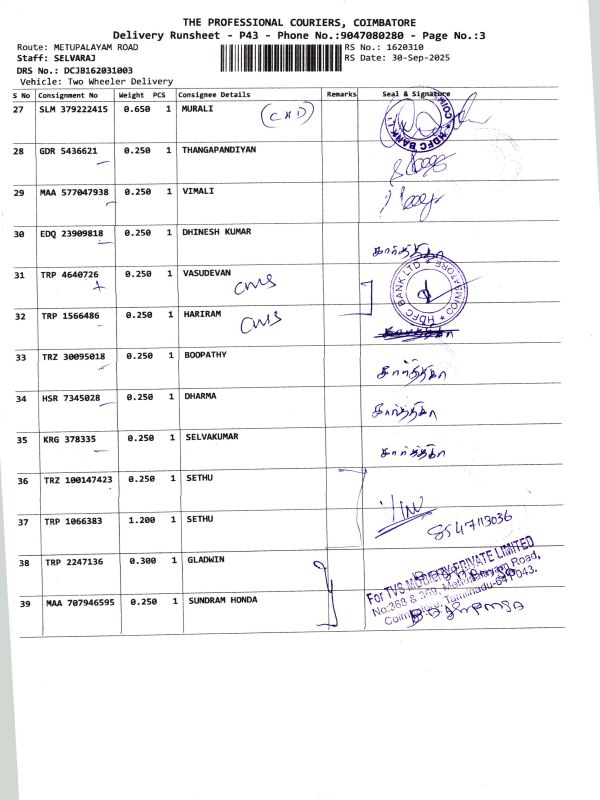 THE PROFESSIONAL COURIERS, COIMBATORE
Delivery Runsheet - P43 - Phone No.:9047080280 - Page No.:3
Route: METUPALAYAM ROAD RS No.: 1620310
Staff: SELVARAJ RS Date: 30-Sep-2025
DRS No.: DCJB162031003
Vehicle: Two Wheeler Delivery
S No Consignment No Weight PCS Consignee Details Remarks Seal & Signature
27 SLM 379222415 0.650 1 MURALI HDFC BANK
28 GDR 5436621 0.250 1 THANGAPANDIYAN
29 MAA 577047938 0.250 1 VIMALI
30 EDQ 23909818 0.250 1 DHINESH KUMAR கார்த்திகா
31 TRP 4640726 0.250 1 VASUDEVAN CMS HDFC BANK LTD * COIMBATORE *
32 TRP 1566486 0.250 1 HARIRAM CMS
33 TRZ 30095018 0.250 1 BOOPATHY கார்த்திகா
34 HSR 7345028 0.250 1 DHARMA கார்த்திகா
35 KRG 378335 0.250 1 SELVAKUMAR கார்த்திகா
36 TRZ 100147423 0.250 1 SETHU
37 TRP 1066383 1.200 1 SETHU
38 TRP 2247136 0.300 1 GLADWIN
For TVS MOBILITY PRIVATE LIMITED
No:363 & 369, Mettupalayam Road,
Coimbatore, Tamilnadu-641 043.
39 MAA 707946595 0.250 1 SUNDRAM HONDA